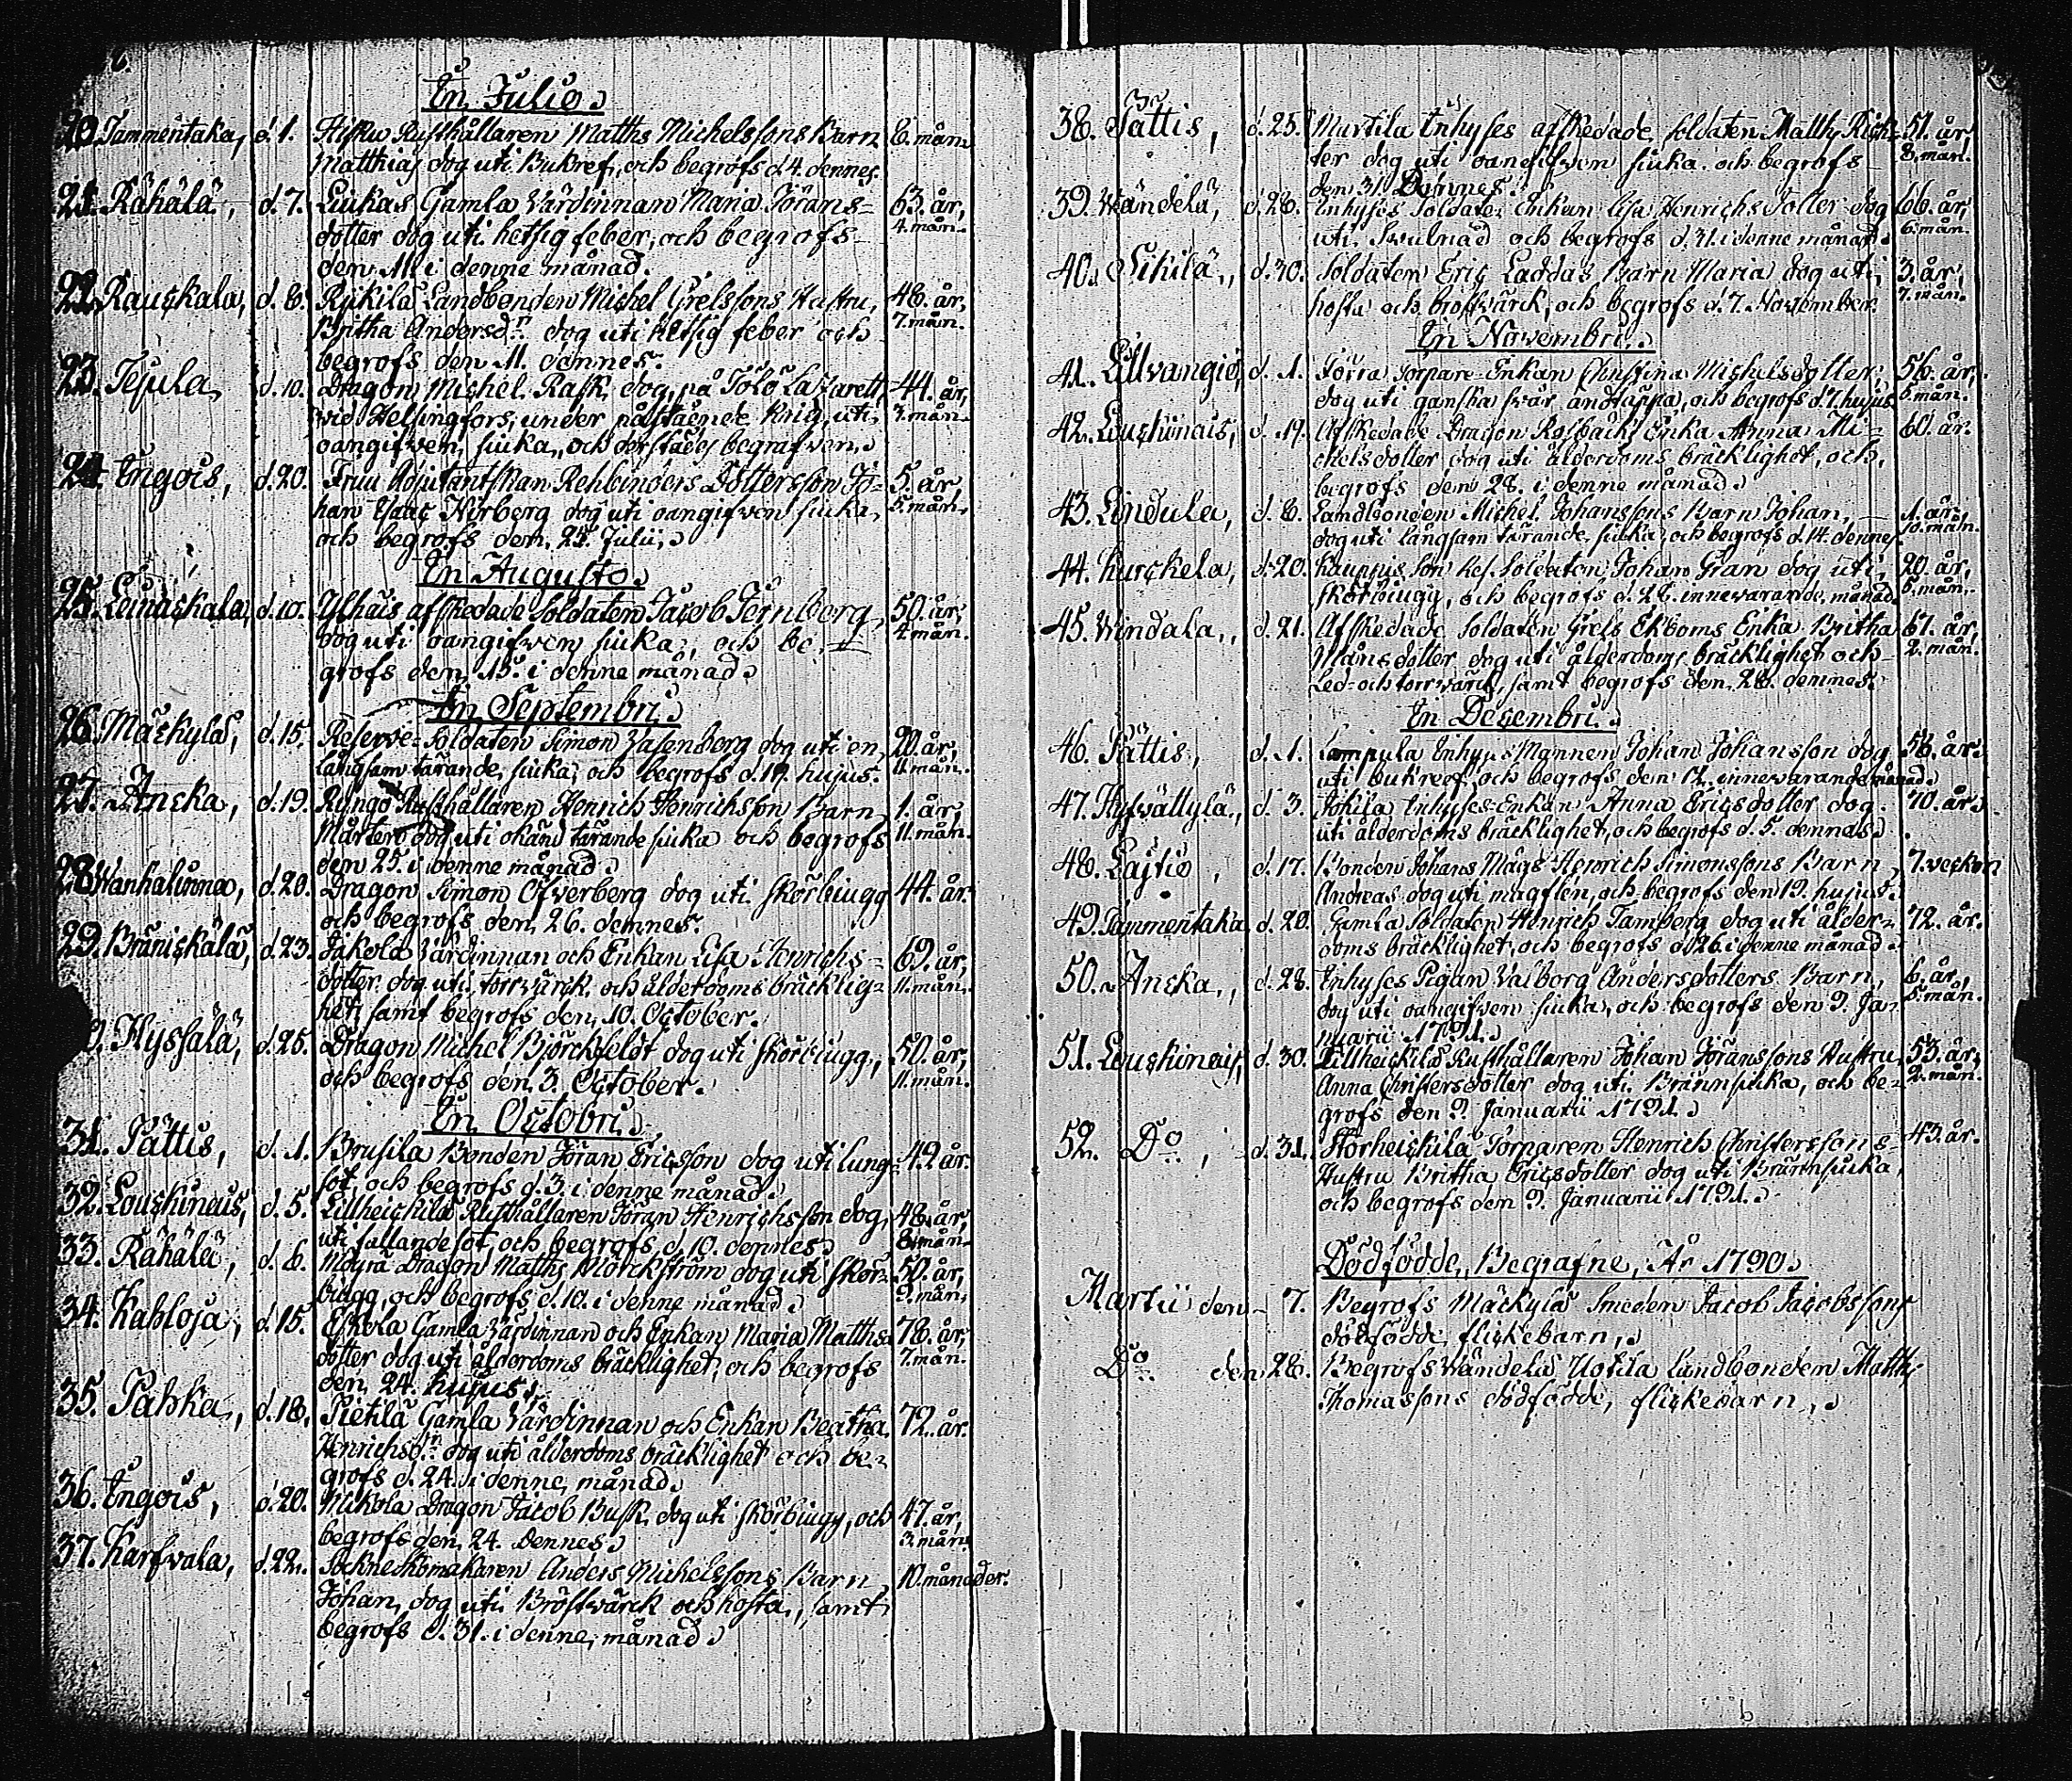 In Julio
20. Tammentaka, d. 1. Hisku Rusthållaren Matths Michelssons Barn 6. mån.
Matthias dog uti Bukref, och begrofs d. 4. dennes.
21. Rähälä, d. 7. Liukas Gamla Värdinnan Maria Jörans- 63. år,
dotter dog uti hetsig feber, och begrofs 4. mån.
den 11. i denne månad.
22. Rauskala, d. 8. Rijkilä Landbonden Michel Grelssons Hustru, 48. år,
Britha Andersdr. dog uti hetsig feber och 7. mån.
begrofs den 11. dennes.
23. Tejula, d. 10. Dragon Michel Rask dog på Tölö Lazarett 44. år,
vid Helsingfors, under påstående krig, uti 3. mån.
oangifven siuka, och derstädes begrafven.
24. Ingois, d. 20. Fruu Adjutantskan Rehbinders Dotterson Jo- 5. år
han Isaac Norberg dog uti oangifven siuka, 5. mån.
och begrofs den 25. Julii.
In Augusto.
25. Leinäskala, d. 10. Ylhäis afskedade Soldaten Jacob Jernberg, 50. år,
dog uti oangifven siuka, och be- 4. mån.
grofs den 15. i denne månad.
In Septembri.
26. Mäckylä, d. 15. Reserve-Soldaten Simon Vasenberg dog uti en 20. år,
långsam tärande siuka, och begrofs d. 19. hujus. 11. mån.
27. Anska, d. 19. Ryngö Rusthållaren Henrich Henrichsson Barn 1. år,
Mårten dog uti okänd tärande siuka och begrofs 11. mån.
den 25. i denne månad.
28. Wanhalinna, d. 20. Dragon Simon Öfverberg dog uti skörbiugg 44. år.
och begrofs den 26. dennes.
29. Bräniskälä, d. 23. Jakola Värdinnan och Enkan Lisa Henrichs- 69. år,
dotter dog uti torrvärck och ålderdoms bräcklig- 11. mån.
het, samt begrofs den 10. October.
Hyssälä, d. 25. Dragon Michel Björckfeldt dog uti skörbiugg, 50. år,
och begrofs den 3. October. 11. mån.
In Octobri.
31. Pättis, d. 1. Brusila Bonden Jöran Ericsson dog uti lung- 42. år.
sot och begrofs d. 3. i denne månad.
32. Louskinais, d. 5. Lillheickilä Rusthållaren Jöran Henrichsson dog 48. år,
uti fallandesot, och begrofs d. 10. dennes. 8. mån.
33. Rähälä, d. 6. Möyrä Dragon Matths Morckström dog uti skör- 50. år,
biugg, och begrofs d. 10. i denne månad. 9. mån.
34. Kabloja, d. 15. Eskola Gamla Värdinnan och Enkan Maria Matths- 78. år,
dotter dog uti ålderdoms bräcklighet, och begrofs 7. mån.
den 24. hujus.
35. Pahka, d. 18. Pietilä Gamla Värdinnan och Enkan Beatha 72. år.
Henrichsdr. dog uti ålderdoms bräcklighet och be-
grofs d. 24. i denne månad.
36. Ingois, d. 20. Nickola Dragon Jacob Busk dog uti skörbiugg, och 47. år,
begrofs den 24. Dennes. 3. mån.
37. Karfvala, d. 22. Sockneskomakaren Anders Michelssons Barn 10. månader.
Johan, dog uti Bröstvärck och hosta, samt
begrofs d. 31. i denne månad.
38. Pättis, d. 25. Murtila Inhyses afskedade soldaten Matths Rich- 51. år
ter dog uti oangifven siuka och begrofs 8. mån.
den 31. Dennes.
39. Wändelä, d. 26. Inhyses Soldate-Enkan Lisa Henrichs Dotter dog 66. år,
uti Svulnad och begrofs d. 31. i denne månad. 6. mån.
40. Sikilä, d. 30. Soldaten Eric Laddas Barn Maria dog uti 3. år,
hosta och bröstvärck, och begrofs d. 7. November. 7. mån.
In Novembri.
41. Lillvangio, d. 1. Jorra Torpare-Enkan Christina Michelsdotter 56. år,
dog uti ganska svår andtäppa, och begrofs d. 7. hujus. 6. mån.
42. Louskinais, d. 19. Afskedade Dragon Rosbäcks Enka Anna Mi- 60. år.
chelsdotter dog uti ålderdoms bräcklighet, och
begrofs den 28. i denne månad.
43. Lindula, d. 8. Landbonden Michel Johanssons Barn Johan, 1. år,
dog uti långsam tärande siuka, och begrofs d. 14. dennes. 10. mån.
44. Kurckela, d. 20. Kauppis son Res. Soldaten Johan Gran dog uti 20. år,
skörbiugg, och begrofs d. 28. innevarande månad. 5. mån.
45. Windala, d. 21. Afskedade Soldaten Grels Ekboms Enka Britha 67. år,
Månsdotter dog uti ålderdoms bräcklighet och 2. mån.
Led- och torrvärck, samt begrofs den 28. dennes.
In Decembri.
46. Pättis, d. 1. Lampula Inhyses Mannen Johan Johansson dog 56. år.
uti bukref och begrofs den 12. innevarande månad.
47. Hyfvättylä, d. 3. Johila Inhyses-Enkan Anna Ericsdotter dog 70. år.
uti ålderdoms bräcklighet, och begrofs d. 5. dennes.
48. Lajtio, d. 17. Bonden Johans Mågs Henrich Simonssons Barn 7. veckor
Andreas dog uti magflen, och begrofs den 19. hujus.
49. Tammentaka d. 20. Gamla Soldaten Henrich Tamberg dog uti ålder- 72. år.
doms bräcklighet, och begrofs d. 26. i denne månad.
50. Anska, d. 28. Inhyses Pigan Valborg Andersdotters Barn, 6. år,
dog uti oangifven siuka, och begrofs den 9. Ja- 5. mån.
nuarii 1791.
51. Louskinais, d. 30. Lillheickilä Rusthållaren Johan Jöranssons Hustru 53. år,
Anna Christersdotter dog uti Brännsiuka, och be- 2. mån.
grofs den 9. Januarii 1791.
52. Do, d. 31. Storheickilä Torparen Henrich Christerssons 43. år.
Hustru Britha Ericsdotter dog uti Brännsiuka,
och begrofs den 9. Januarii 1791.
Dödfödde, Begrafne, År 1790.
Martii den 7. Begrofs Mäckylä Smeden Jacob Jacobssons
dödfödde flickebarn.
Do den 28. Begrofs Wändelä Uotila Landbonden Matths
Thomassons dödfödde, flickebarn.